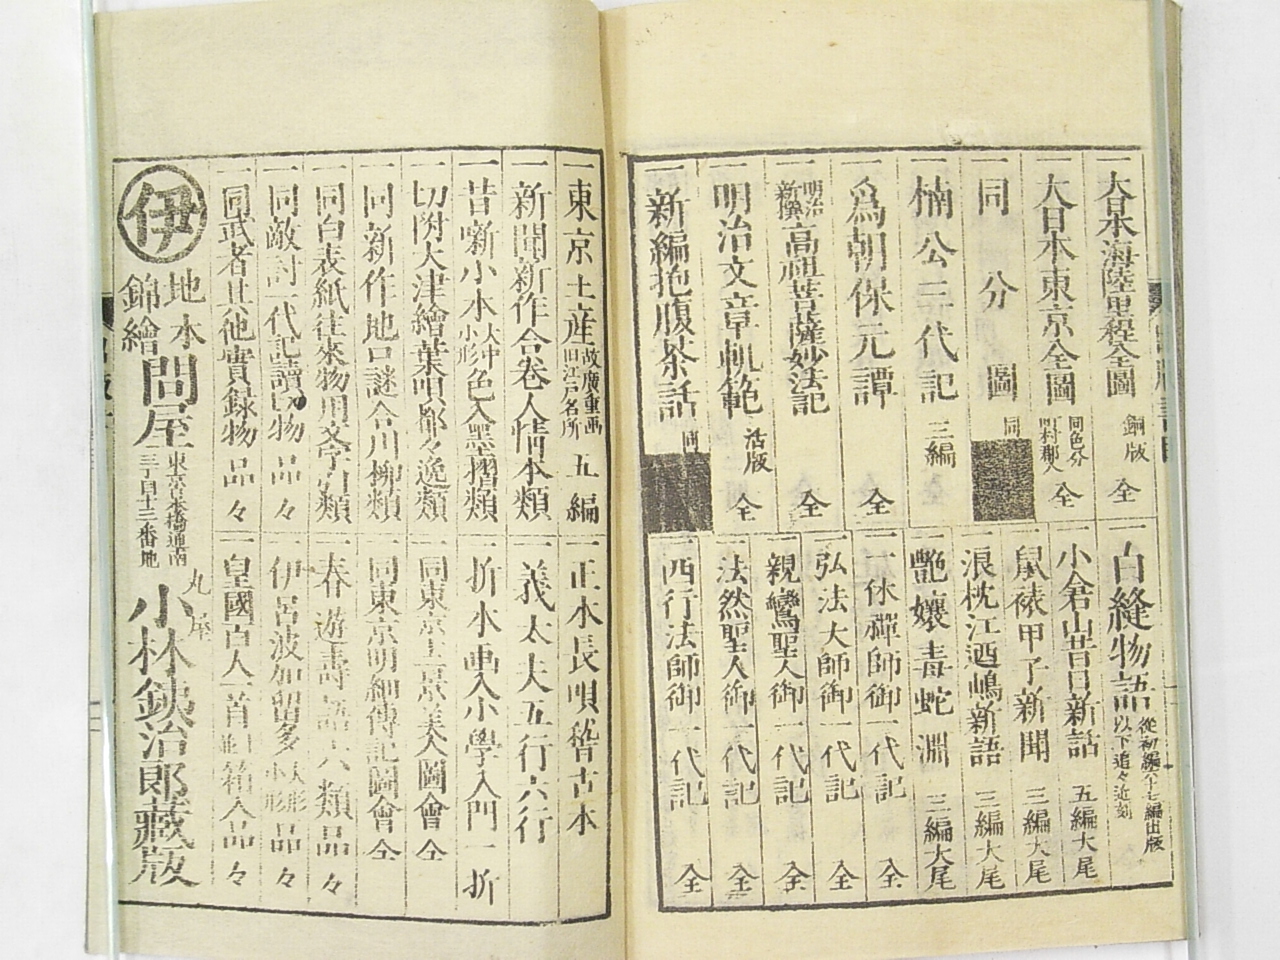 一大日本海陸里程全圖 銅版 全
一大日本東京全圖 同色分 町村郡入 全
一同分圖 同
一楠公三代記 三編
一爲朝保元譚 全
一明治新撰高祖菩薩妙法記 全
一明治文章軌範 活版 全
一新編抱腹茶話 同
一白縫物語 從初編六十七編出版 以下追々近刻
一小倉山昔日新話 五編大尾
一鼠裱甲子新聞 三編大尾
一浪枕江迺嶋新語 三編大尾
一艷孃毒蛇淵 三編大尾
一一休禪師御一代記 全
一弘法大師御一代記 全
一親鸞聖人御一代記 全
一法然聖人御一代記 全
一西行法師御一代記 全
一東京土産 故廣重画 旧江戸名所 五編
一新聞新作合卷人情本類
一昔噺小本 大中小形 色入墨摺類
一切附大津繪葉唄都々逸類
一同新作地口謎合川柳類
一同白表紙往來物用文字引類
一同敵討一代記讀切物品々
一同武者其他實録物品々
一正本長唄稽古本
一義太夫五行六行
一折本画入小學入門一折
一同東京土京美人圖會 全
一同東京明細傳記圖會 全
一春遊壽語六類品々
一伊呂波加留多 大形小形 品々
一皇國百人一首 箱入品々
伊
地本
錦繪
問屋
東京日本橋通南
三丁目十三番地
丸屋
小林鉄治郎藏版